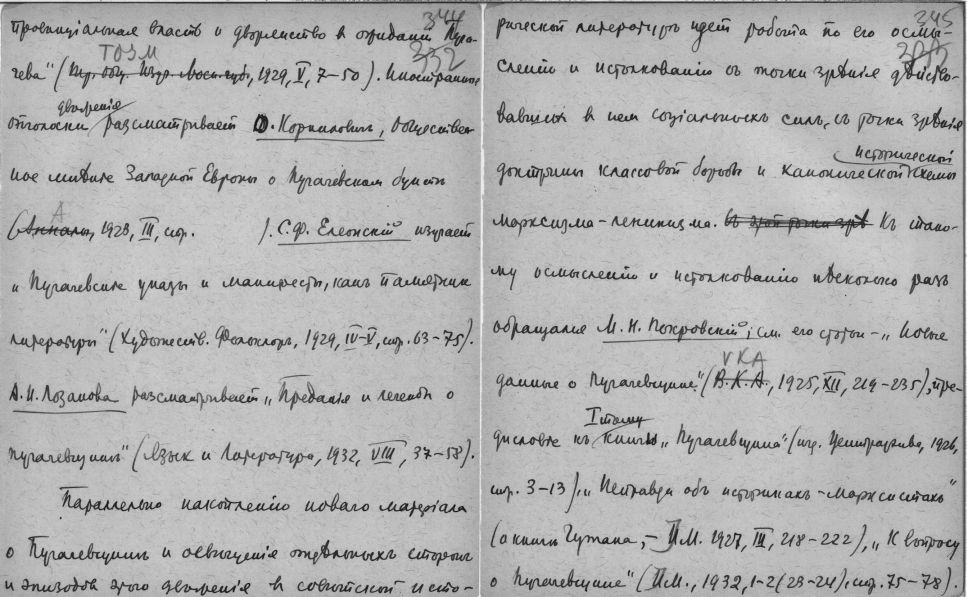 344
332
провинціальная власть и дворянство в ожидании Пуга-
ТОЗМ
чева" (Тр. Общ. Изуч. Моск. губ., 1929, V, 7-50). Иностранные
движенія
отголоски разсматривает О. Корнилович, Обществен
ное мнѣніе Западной Европы о Пугачевском бунтѣ
А
(Анналы, 1923, III, стр. ). С.Ф. Елеонскій изучает
„Пугачевские указы и манифесты, какъ памятник
литературы" (Художеств. Фольклоръ, 1929, IV-V, стр. 63-75).
А.Н. Лозанова разсматривает „Преданія и легенды о
пугачевщинѣ" (Язык и Литература, 1932, VIII, 37-58).
Параллельно накопленію новаго матеріала
о Пугачевщинѣ и освѣщеніе отдѣльныхъ сторонъ
и эпизодов этого движенія в совѣтской исто-
345
рической литературѣ идет работа по его осмы-
333
сленію и истолкованію съ точки зрѣнія дѣйство-
вавших в нем соціальныхъ силъ, съ точки зрѣнія
исторической
доктрины классовой борьбы и канонической схемы
марксизма-ленинизма. въ этой точки зрѣ Къ тако-
му осмысленію и истолкованію нѣсколько разъ
обращался М.Н. Покровскій; см. его статьи - „Новые
VKA
данные о Пугачевщине" (В.К.А., 1925, XII, 219-235), пре-
I тому
дисловіе къ книгѣ „Пугачевщина" (изд. Центрархива, 1926,
стр. 3-13), „Неправда об историках-марксистахъ"
(о книге Гутмана, - И.М. 1927, III, 218-222), „К вопросу
о Пугачевщине" (И.М., 1932, 1-2 (23-24), стр. 75-78).